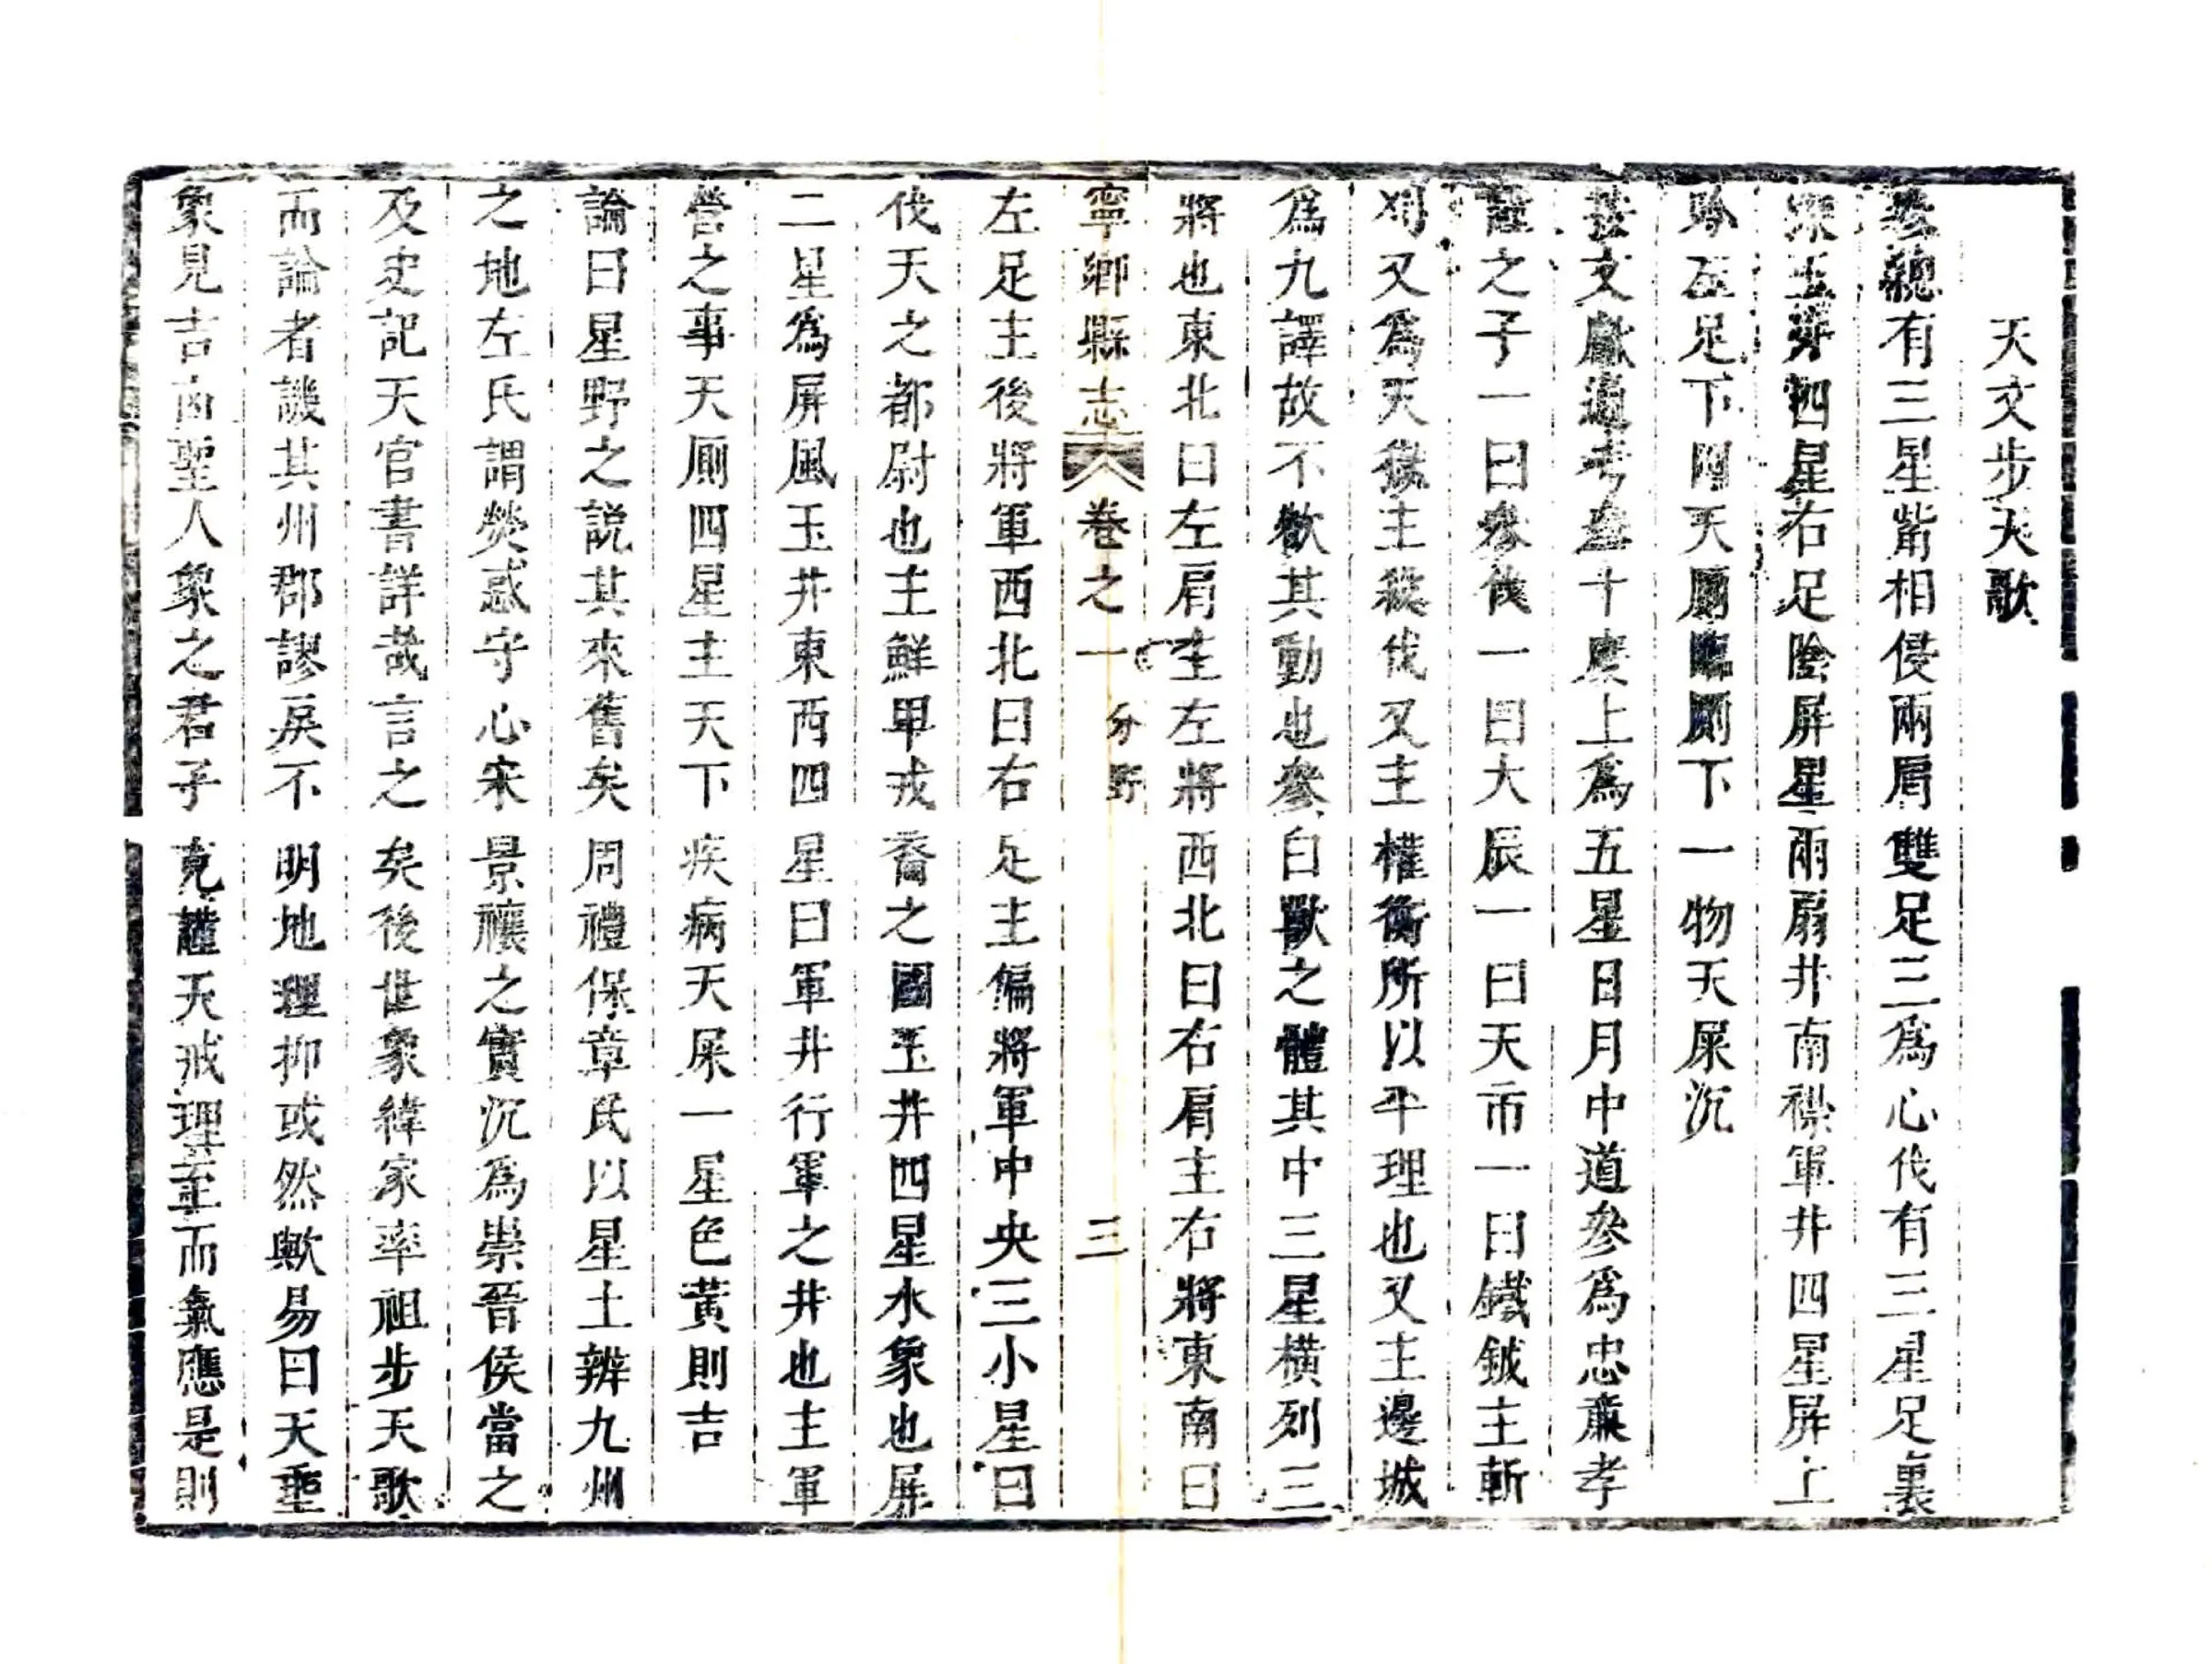 天文步天歌
參總有三星觜相侵兩肩雙足三爲心伐有三星足裏
深玉井四星右足陰屏星兩扇井南襟軍井四星屏上
吟左足下四天厠臨厠下一物天屎沉
文獻通考參十度上爲五星日月中道參爲忠亷孝
謹之子一曰參伐一曰大辰一曰天市一曰鐵鉞主斬
刈又爲天獄主殺伐又主權衡所以平理也又主邊城
爲九譯故不欲其動也參白獸之體其中三星橫列三
將也東北曰左肩主左將西北曰右肩主右將東南曰
寧鄉縣志 卷之一 分野 三
左足主後將軍西北曰右足主偏將軍中央三小星曰
伐天之都尉也主鮮卑戎裔之國玉井四星水象也屏
二星爲屏風玉井東西四星曰軍井行軍之井也主軍
營之事天厠四星主天下疾病天屎一星色黃則吉
論曰星野之説其來舊矣周禮保章氏以星土辨九州
之地左氏謂熒惑守心宋景禳之實沉爲崇晉侯當之
及史記天官書詳哉言之矣後世象緯家率祖步天歌
而論者譏其州郡謬戾不明地理抑或然歟易曰天垂
象見吉凶聖人象之君子克謹天戒理至而氣應是則